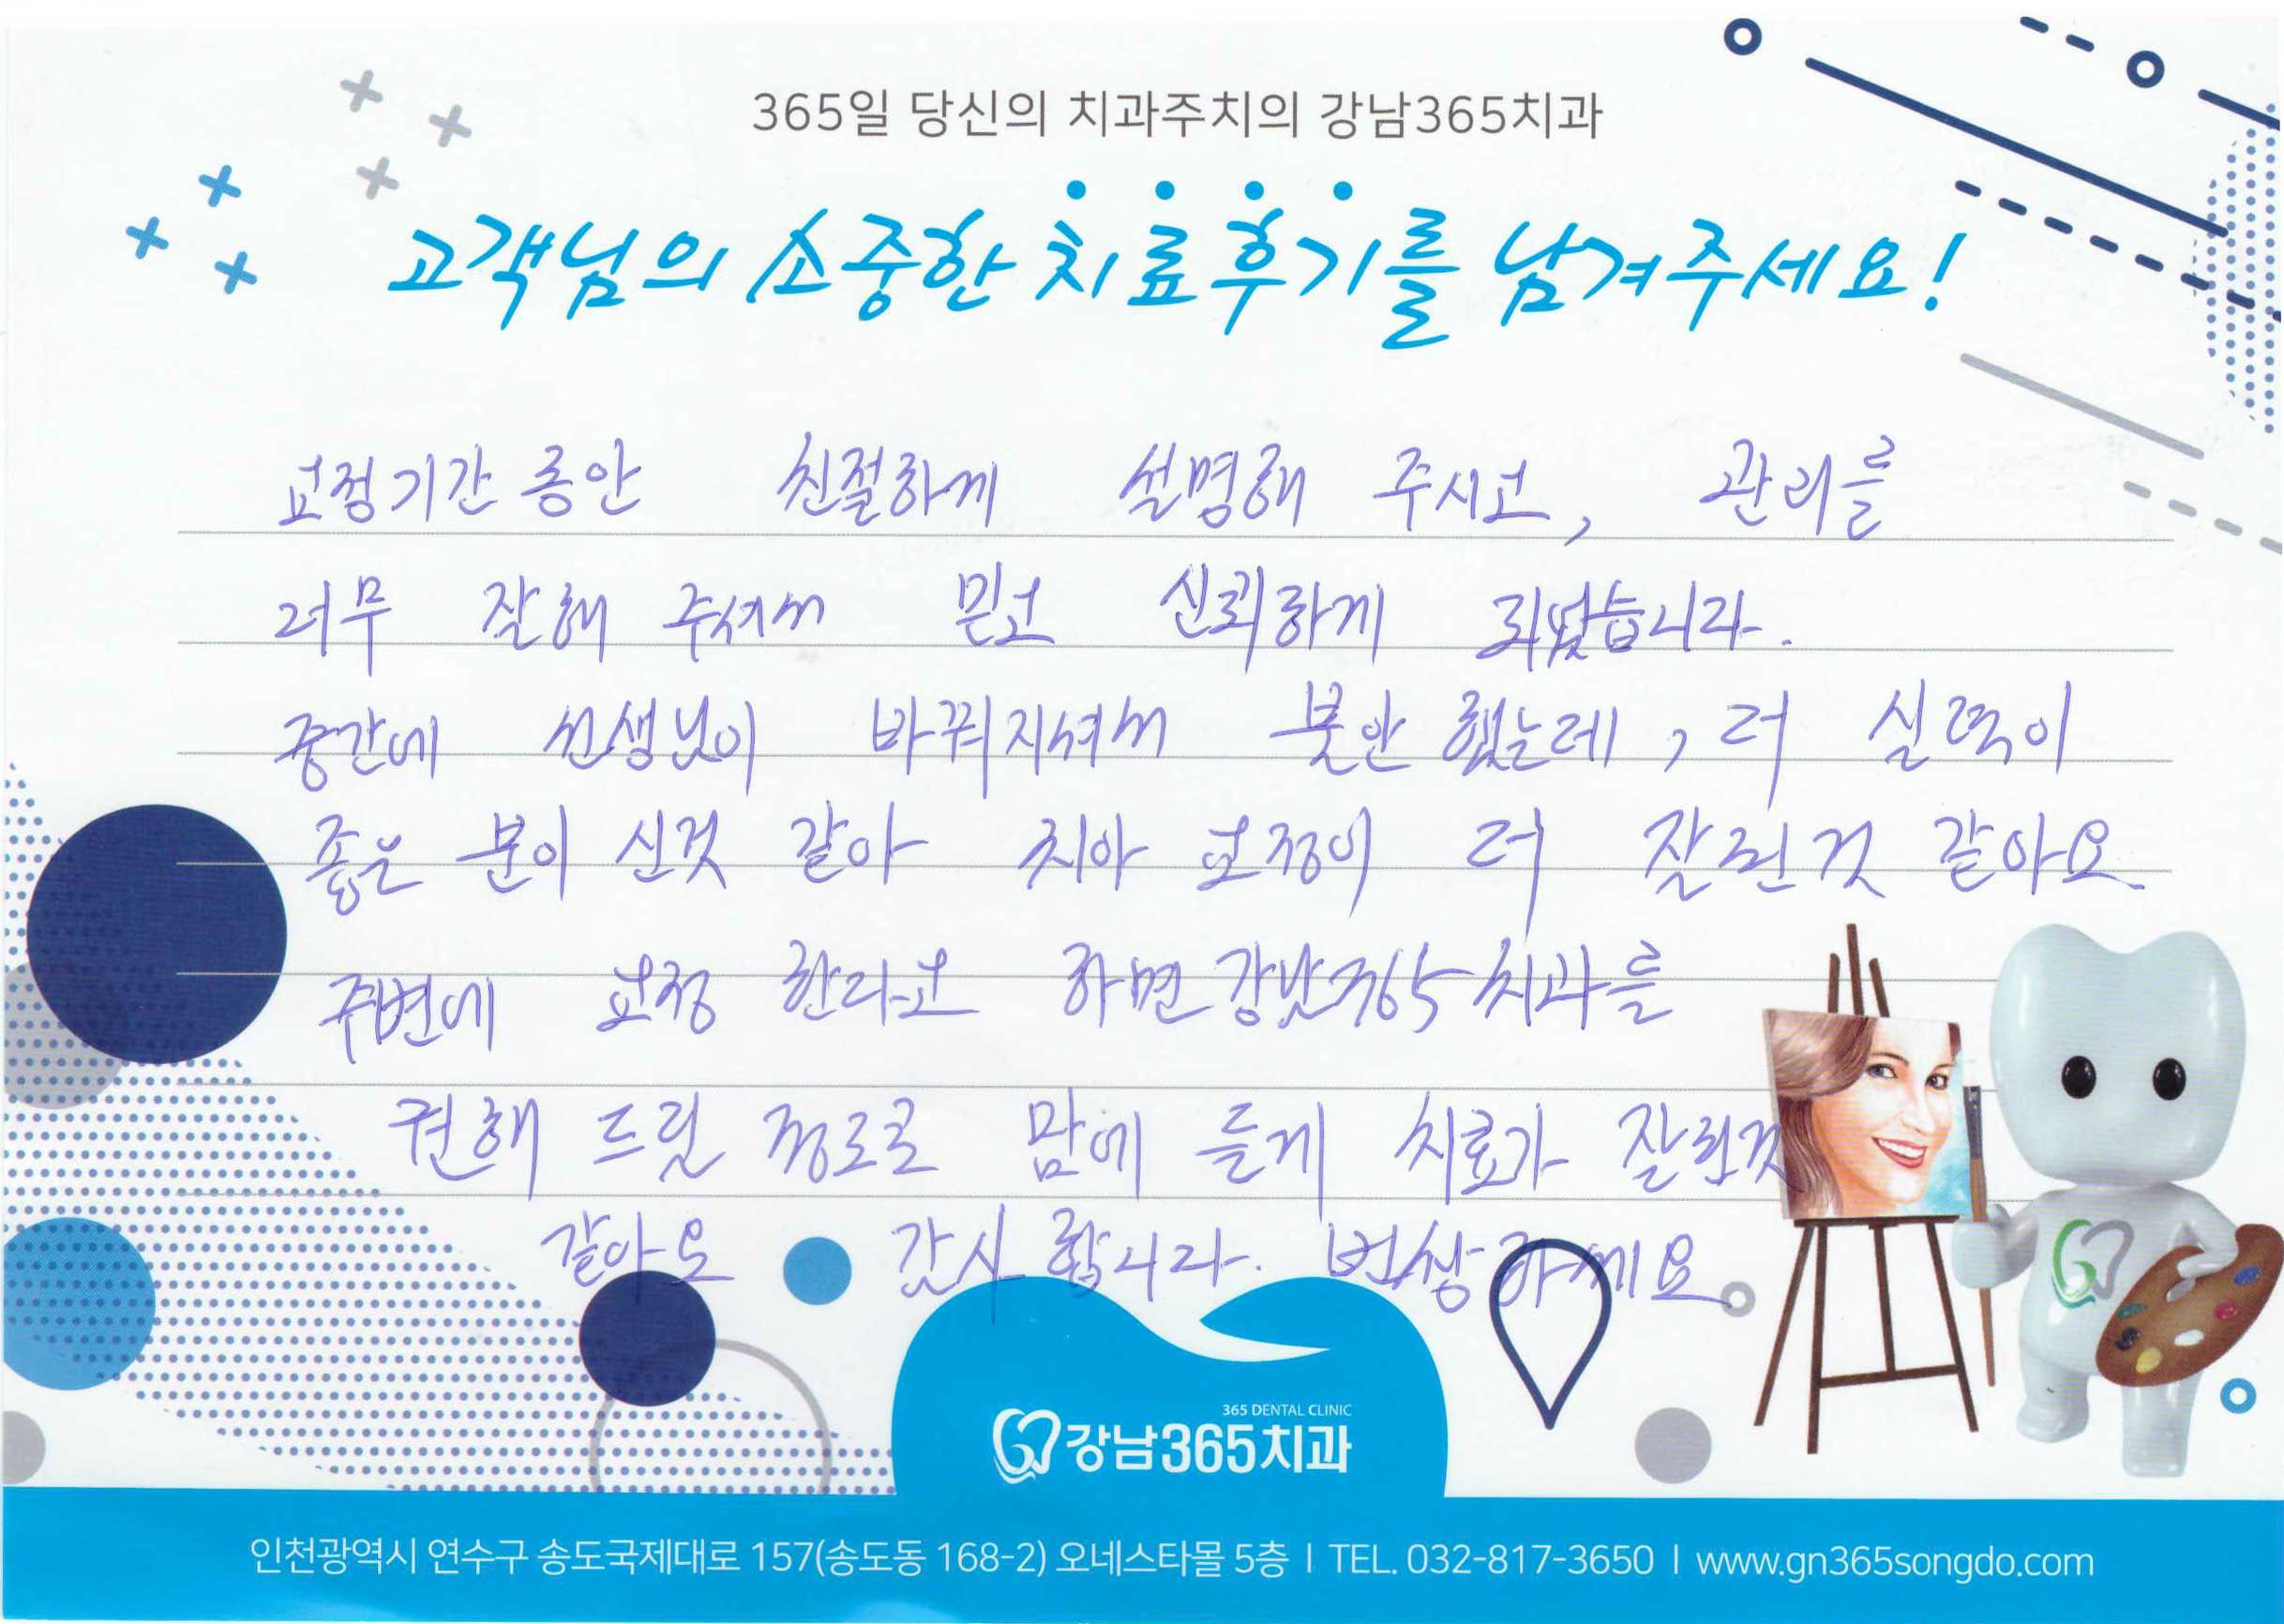 365일 당신의 치과주치의 강남365치과
고객님의 소중한 치료후기를 남겨주세요!
교정기간 동안 친절하게 설명해 주시고, 관리를
너무 잘해 주셔서 믿고 신뢰하게 되었습니다.
중간에 선생님이 바뀌지셔서 불안 했는데, 더 실력이
좋은 분이 신것 같아 치아 교정이 더 잘된것 같아요
주변에 교정 한다고 하면 강남365치과를
권해 드릴 정도로 맘에 들게 치료가 잘된것
같아요 감사합니다. 번창하세요
365 DENTAL CLINIC
강남365치과
인천광역시 연수구 송도국제대로 157(송도동 168-2) 오네스타몰 5층 | TEL. 032-817-3650 | www.gn365songdo.com